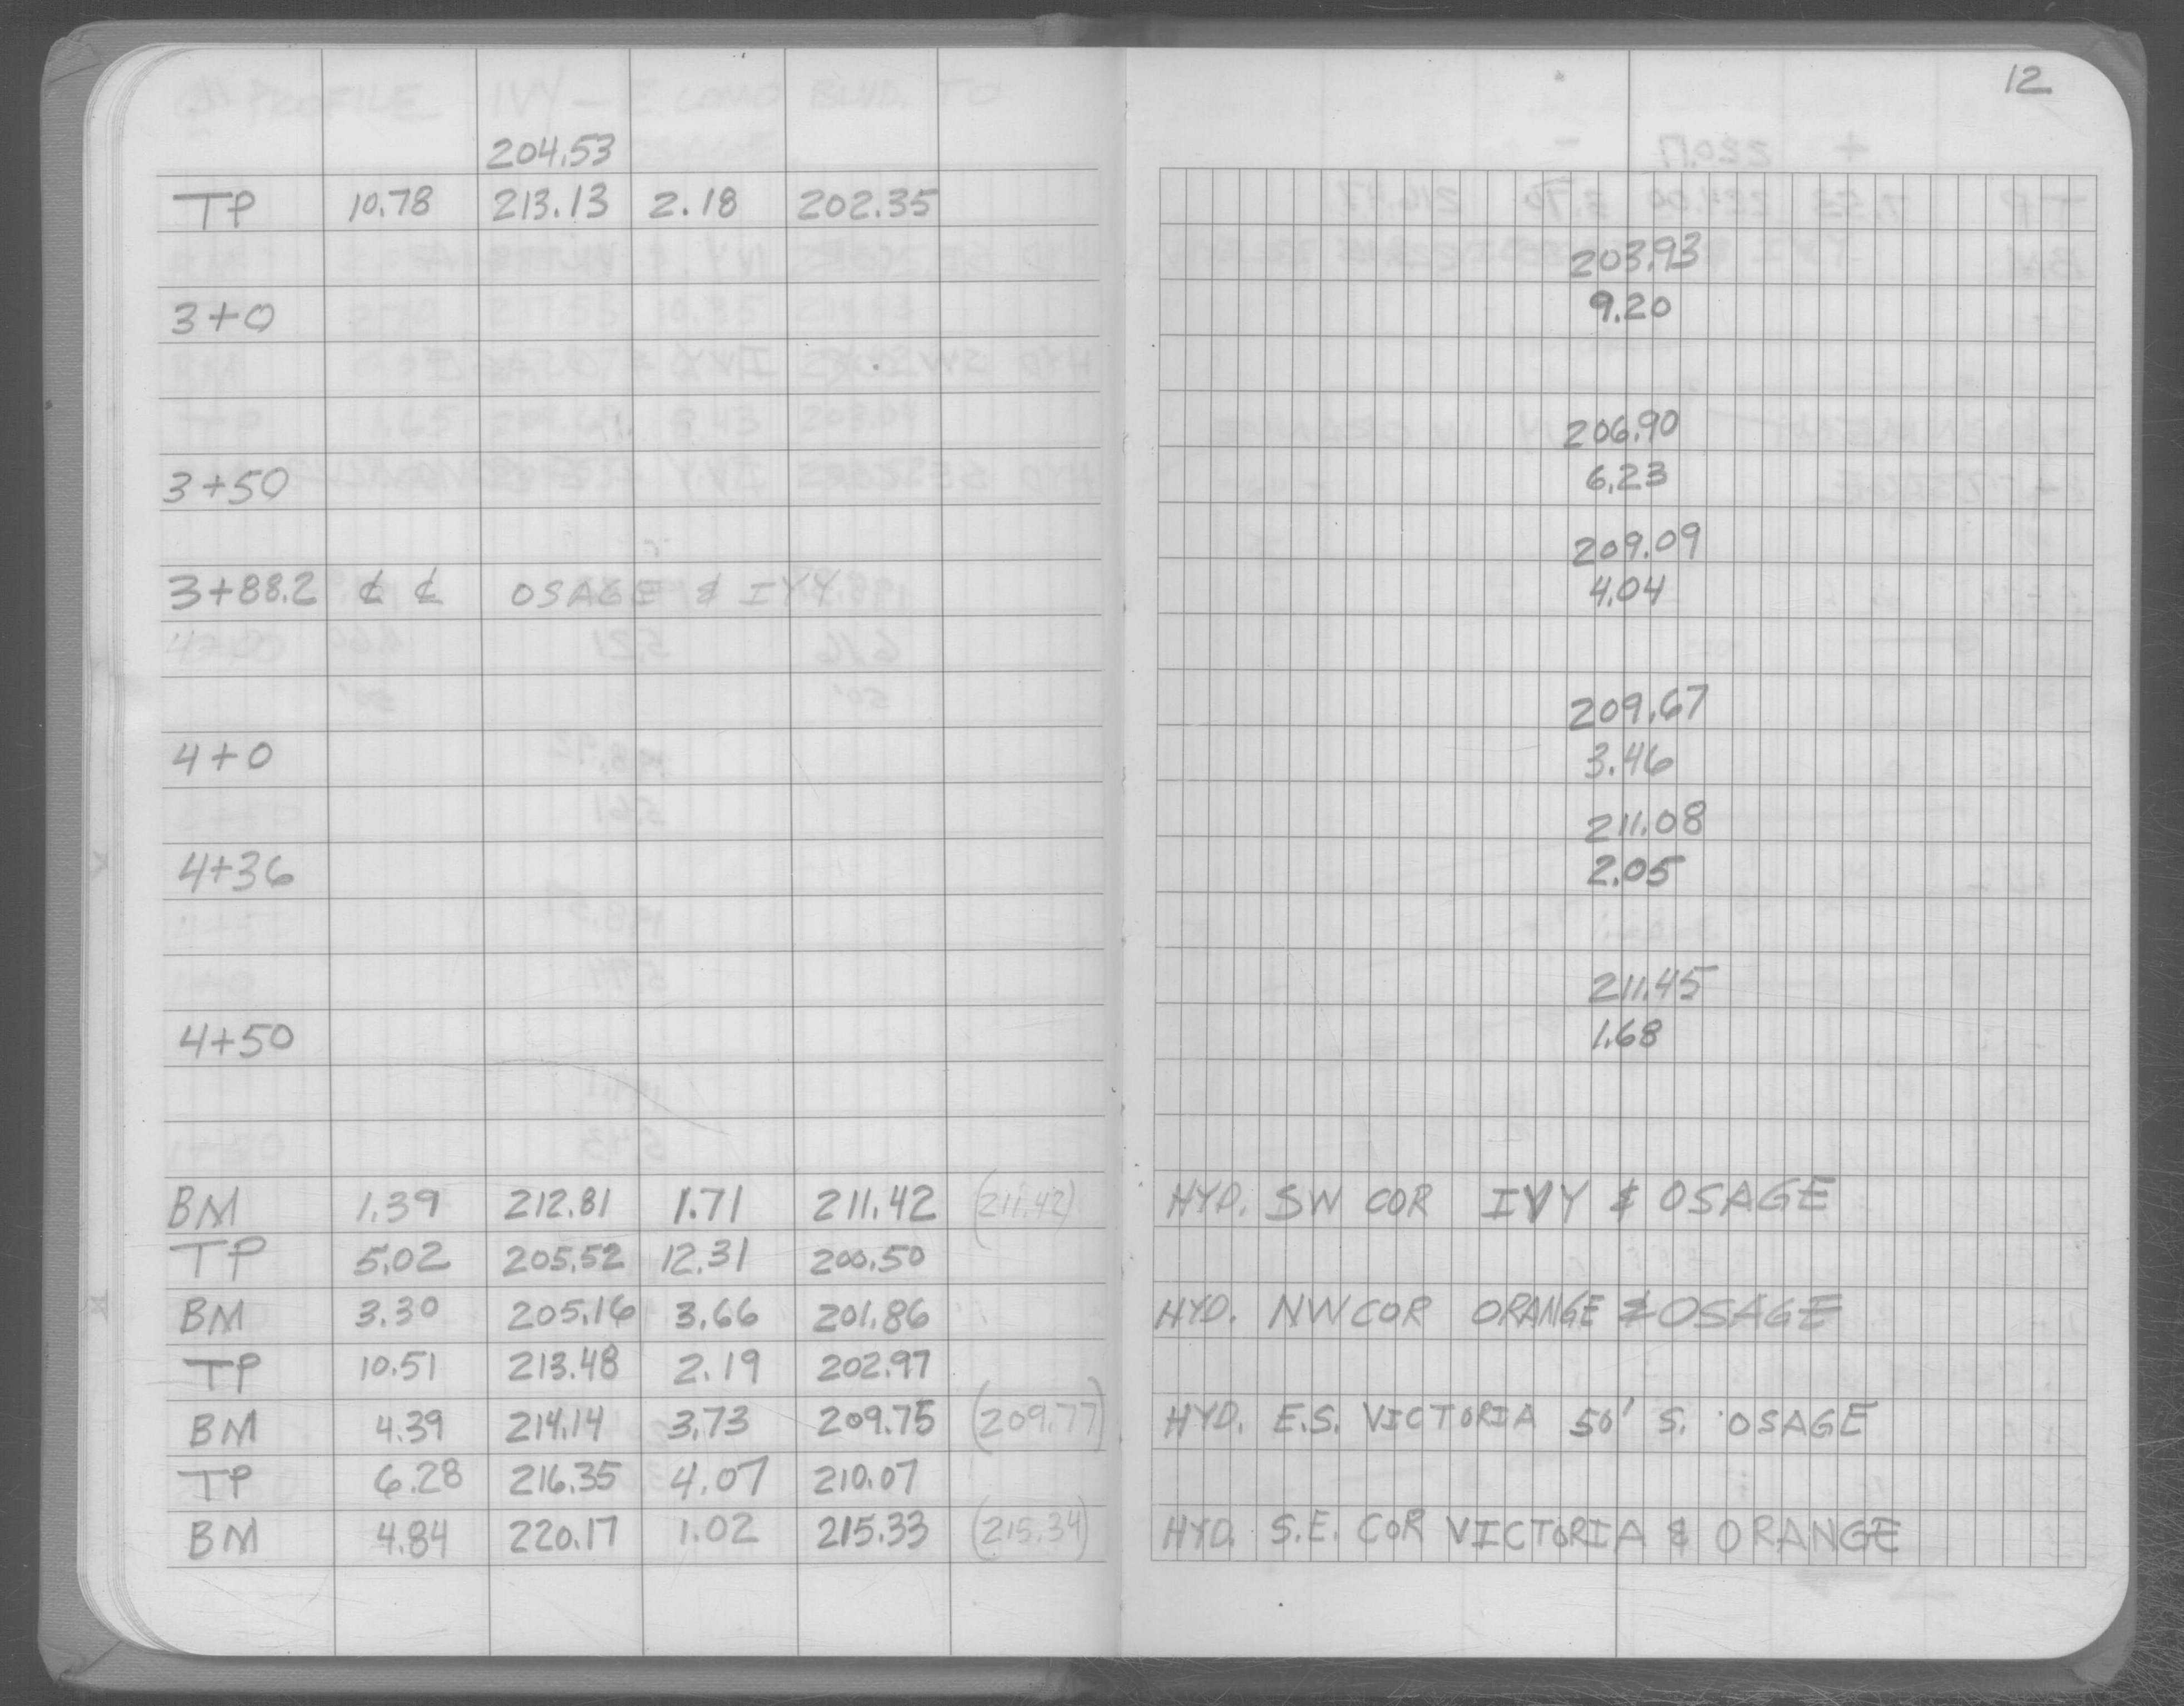 12
204.53
TP 10.78 213.13 2.18 202.35
203.93
3+0 9.20
206.90
3+50 6.23
209.09
3+88.2 ȼ ȼ OSAGE & IVY 4.04
209.67
4+0 3.46
211.08
4+36 2.05
211.45
4+50 1.68
BM 1.39 212.81 1.71 211.42 (211.42) HYD. SW COR IVY & OSAGE
TP 5.02 205.52 12.31 200.50
BM 3.30 205.16 3.66 201.86 HYD. NW COR ORANGE & OSAGE
TP 10.51 213.48 2.19 202.97
BM 4.39 214.14 3.73 209.75 (209.77) HYD. E.S. VICTORIA 50' S. OSAGE
TP 6.28 216.35 4.07 210.07
BM 4.84 220.17 1.02 215.33 (215.34) HYD. S.E. COR VICTORIA & ORANGE